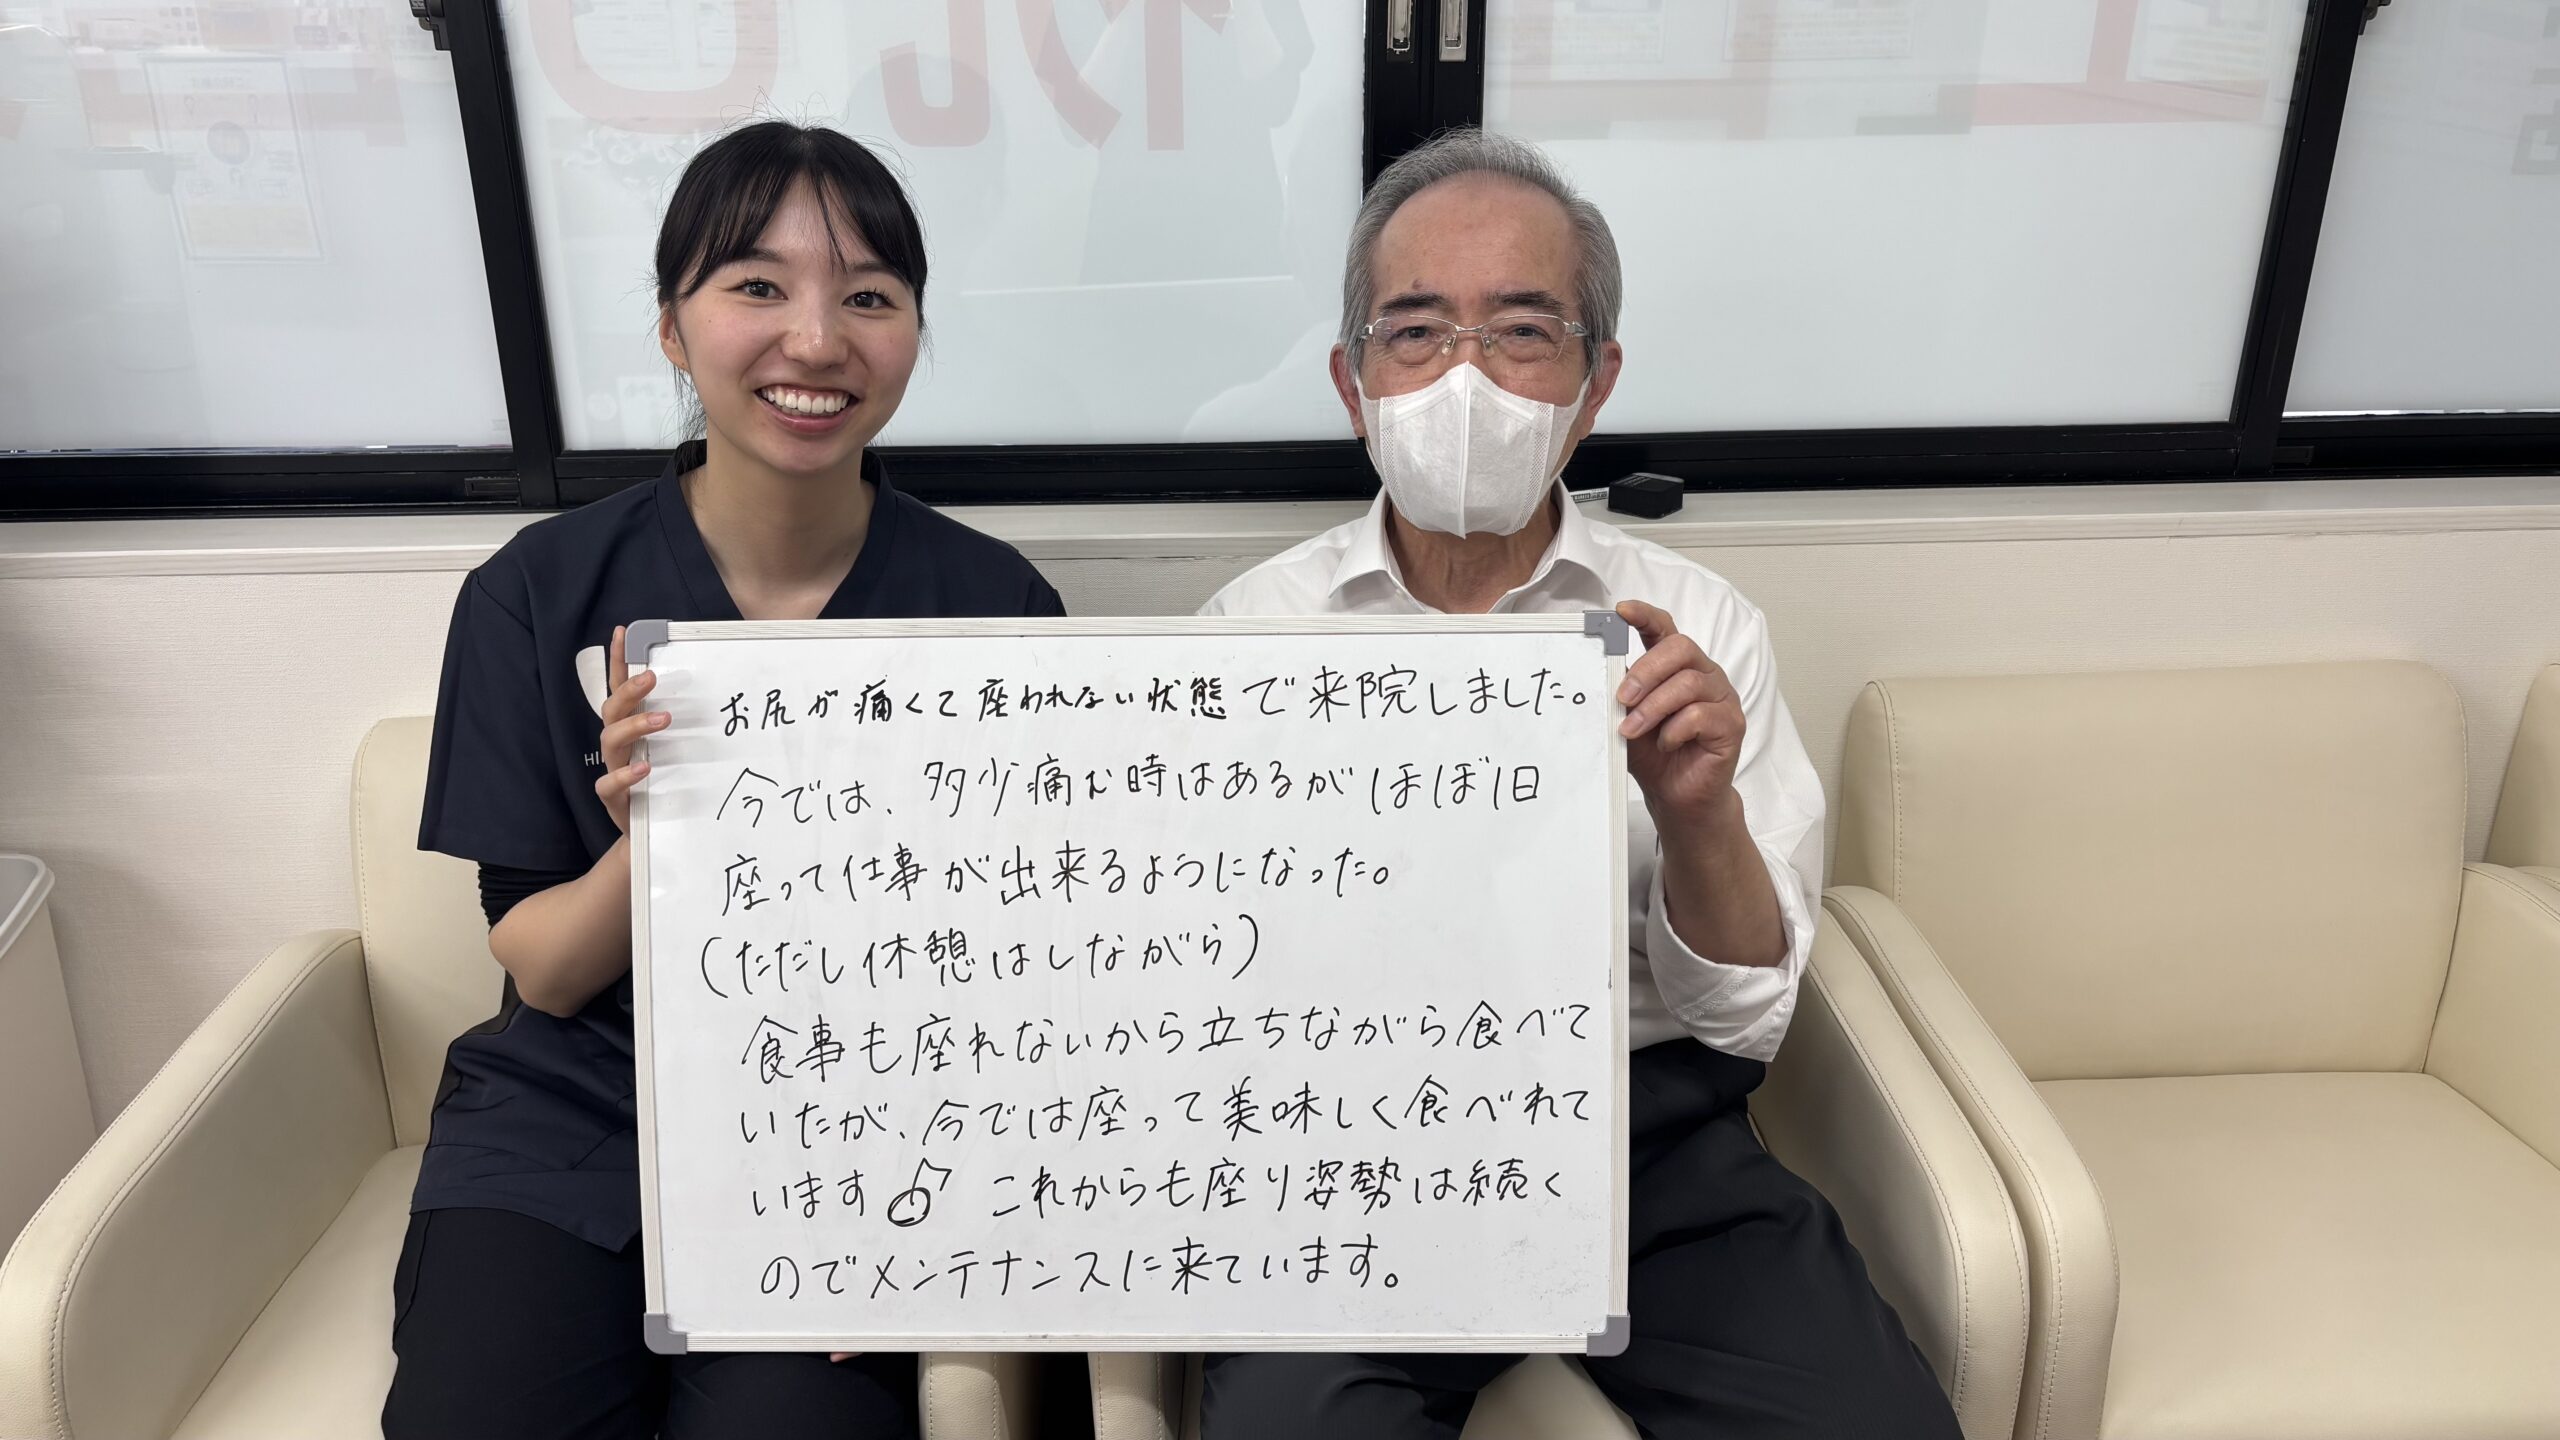 お尻が痛くて座われない状態で来院しました。
今では、多少痛む時はあるがほぼ1日
座って仕事が出来るようになった。
(ただし休憩はしながら)
食事も座れないから立ちながら食べて
いたが、今では座って美味しく食べれて
います♪ これからも座り姿勢は続く
のでメンテナンスに来ています。
HI